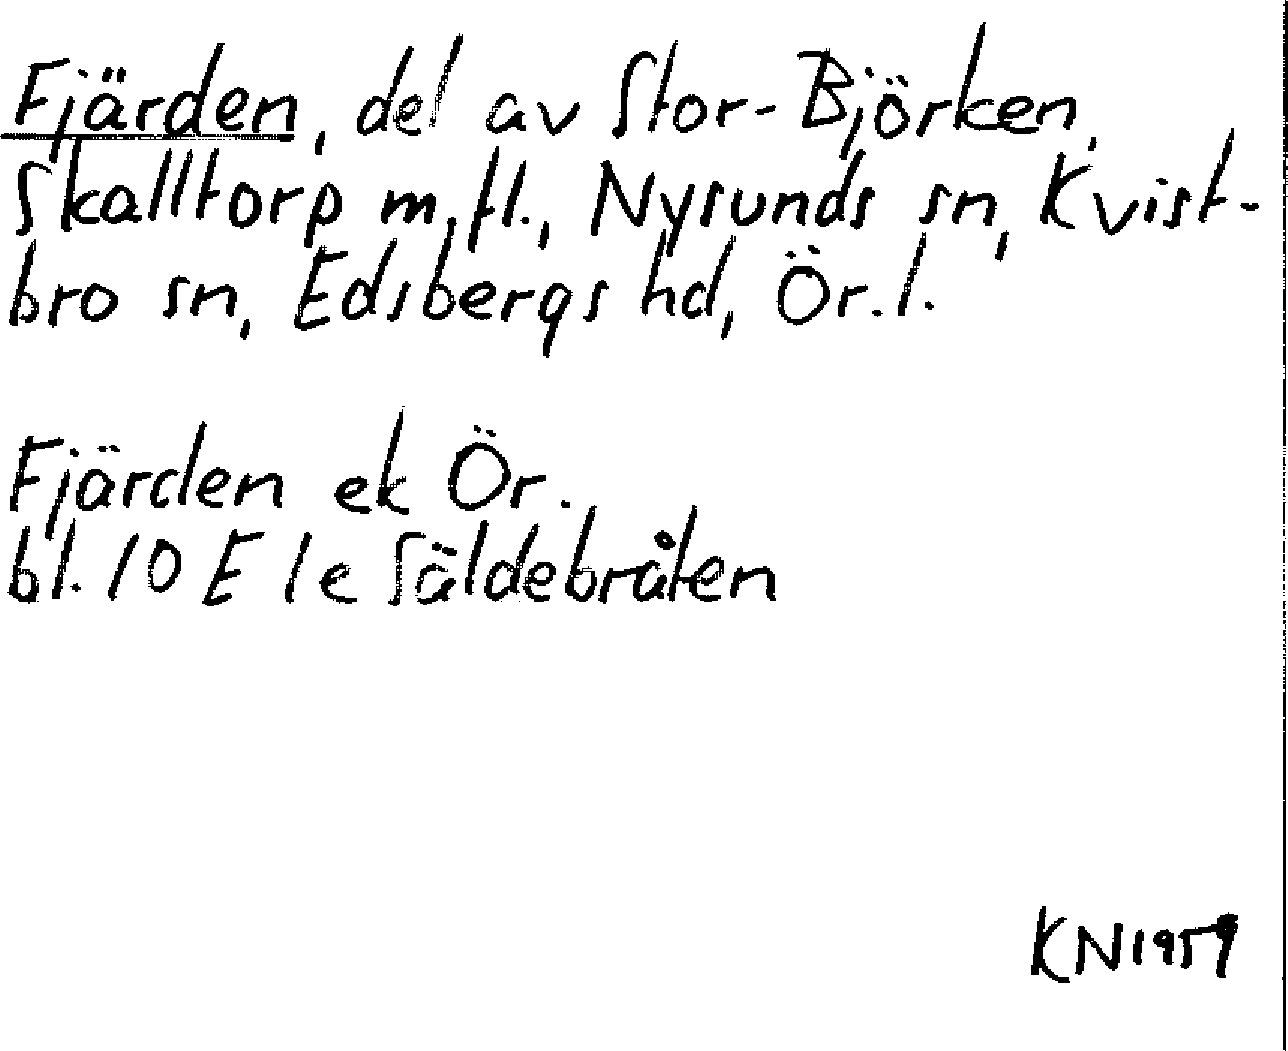 Fjärden, del av Stor-Björken,
Skalltorp m.fl., Nysunds sn, Kvist-
bro sn, Edsbergs hd, Ör.l.
Fjärden ek Ör.
bl. 10 E 1e Säldebråten
KN1959